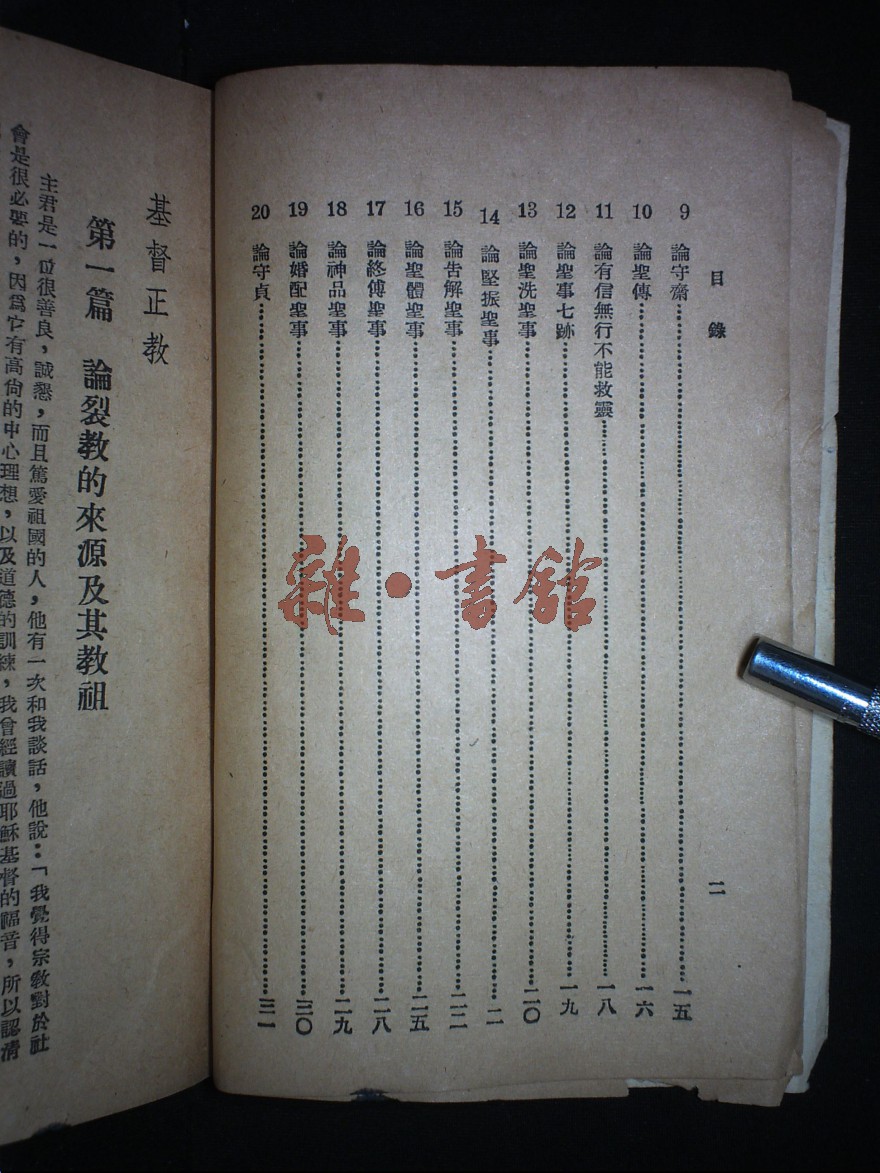 目錄
二
9 論守齋……一五
10 論聖傳……一六
11 論有信無行不能救靈……一八
12 論聖事七跡……一九
13 論聖洗聖事……二〇
14 論堅振聖事……二二
15 論告解聖事……二二
16 論聖體聖事……二五
17 論終傅聖事……二八
18 論神品聖事……二九
19 論婚配聖事……三〇
20 論守貞……三一
基督正教
第一篇 論裂教的來源及其教祖
主君是一位很善良，誠懇，而且篤愛祖國的人，他有一次和我談話，他說：「我覺得宗教對於社
會是很必要的，因爲它有高尙的中心理想，以及道德的訓練，我曾經讀過耶穌基督的福音，所以認清
雜・書館